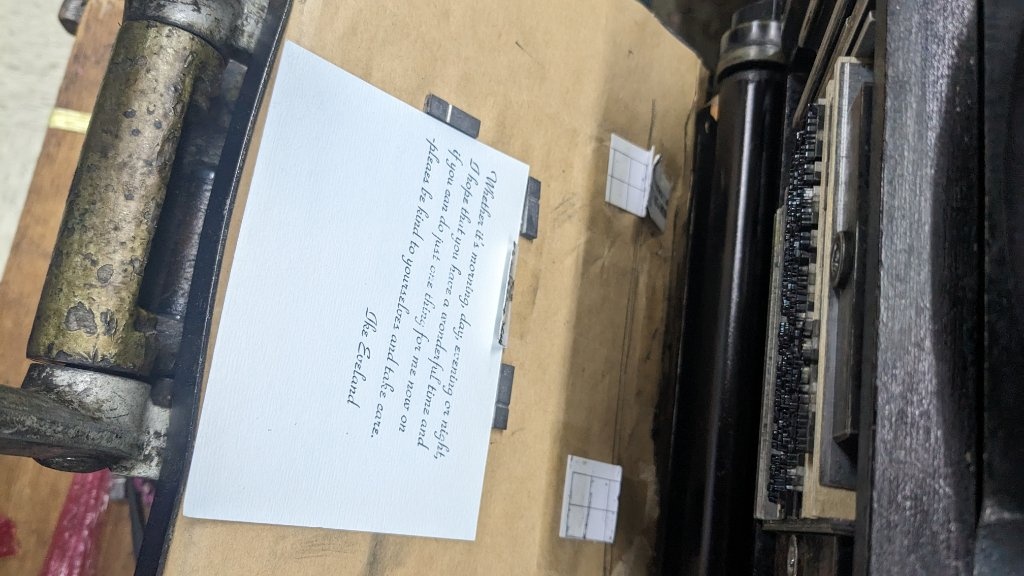 Whether it's morning, day, evening or night,
I hope that you have a wonderful time and
if you can do just one thing for me now on
please be kind to yourselves and take care.
The Evzeland